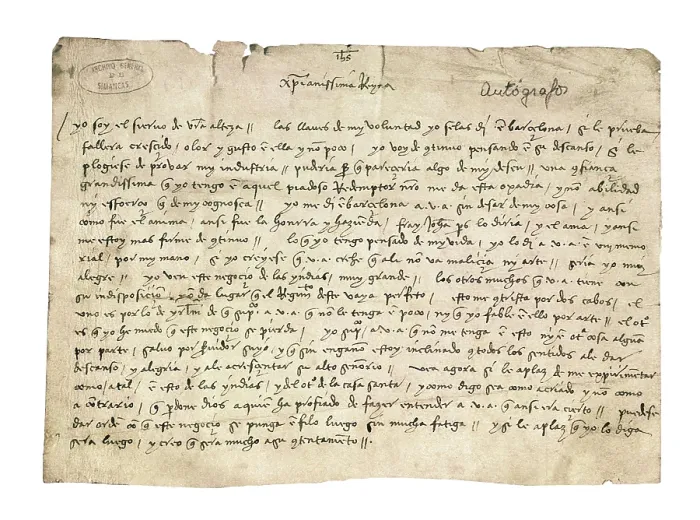 ARCHIVO GENERAL
DE
SIMANCAS
ihs
xp̃ianissima Reyna
Autógrafo
yo soy el sieruo de vr̃a alteza // las llaues de my voluntad yo selas dí ẽ barçelona / si le prueba
fallera crescido / olor y gusto ẽ ella y nõ poco / yo voy de 9tinuo pensando ẽ su descanso / si le
plogiese de provar my industria // puderia q̃ pareçeria algo de my deseu // una 9fiança
grandissima q̃ yo tengo ẽ aquel piadoso Redemptor nr̃o me da esta oxadia / y nõ abilidad
ny esforço q̃ de my cognosca // yo me dí ẽ barçelona a.v.a. sin dexar de my cosa / y ansí
como fue el anima / ansí fue la honrra y hazienda / fray Johã ps lo diria / y el ama / y ansí
me estoy mas firme de 9tinuo // lo q̃ yo tengo pensado de my vida / yo lo dí a v.a. ẽ un memo
rial / por my mano / si yo creyese q̃ v.a. crehe q̃ ala nõ va maliçia ny arte // seria yo muy
alegre // yo veu este negoçio de las yndias / muy grande // los otros muchos q̃ v.a. tiene con
su indisposiçion / nõ da lugar q̃ el Regimto deste vaya perfeto / esto me 9trista por dos cabos / el
uno es por lo de yrlm̃ de q̃ supco a v.a. q̃ nõ le tenga ẽ poco / ny q̃ yo fablé ẽ ello por arte // el otº
es q̃ yo he miedo q̃ este negoçio se pierda / yo supco a v.a. q̃ nõ me tenga ẽ esto ny ẽ otª cosa alguna
por parte / salvo por seruidor suyo / y q̃ sin engano estoy inclinado 9todos los sentidos ale dar
descanso / y alegria / y ale acresçentar su alto señorio // vea agora si le aplaz de me expirimetar
como / atal / ẽ esto de las yndias / y del otº de la casa santa / y como digo sea como a criado y no como
a 9trario / q̃ perdone dios a quien ha profiado de fazer entender a v.a. q̃ ansi era çierto // puedese
dar ordẽ cõ q̃ este negoçio se punga ẽ filo luego sin mucha fatiga // y si le aplaz q̃ yo lo diga
sera luego / y creo q̃ sera mucho a su 9tentamẽto //.